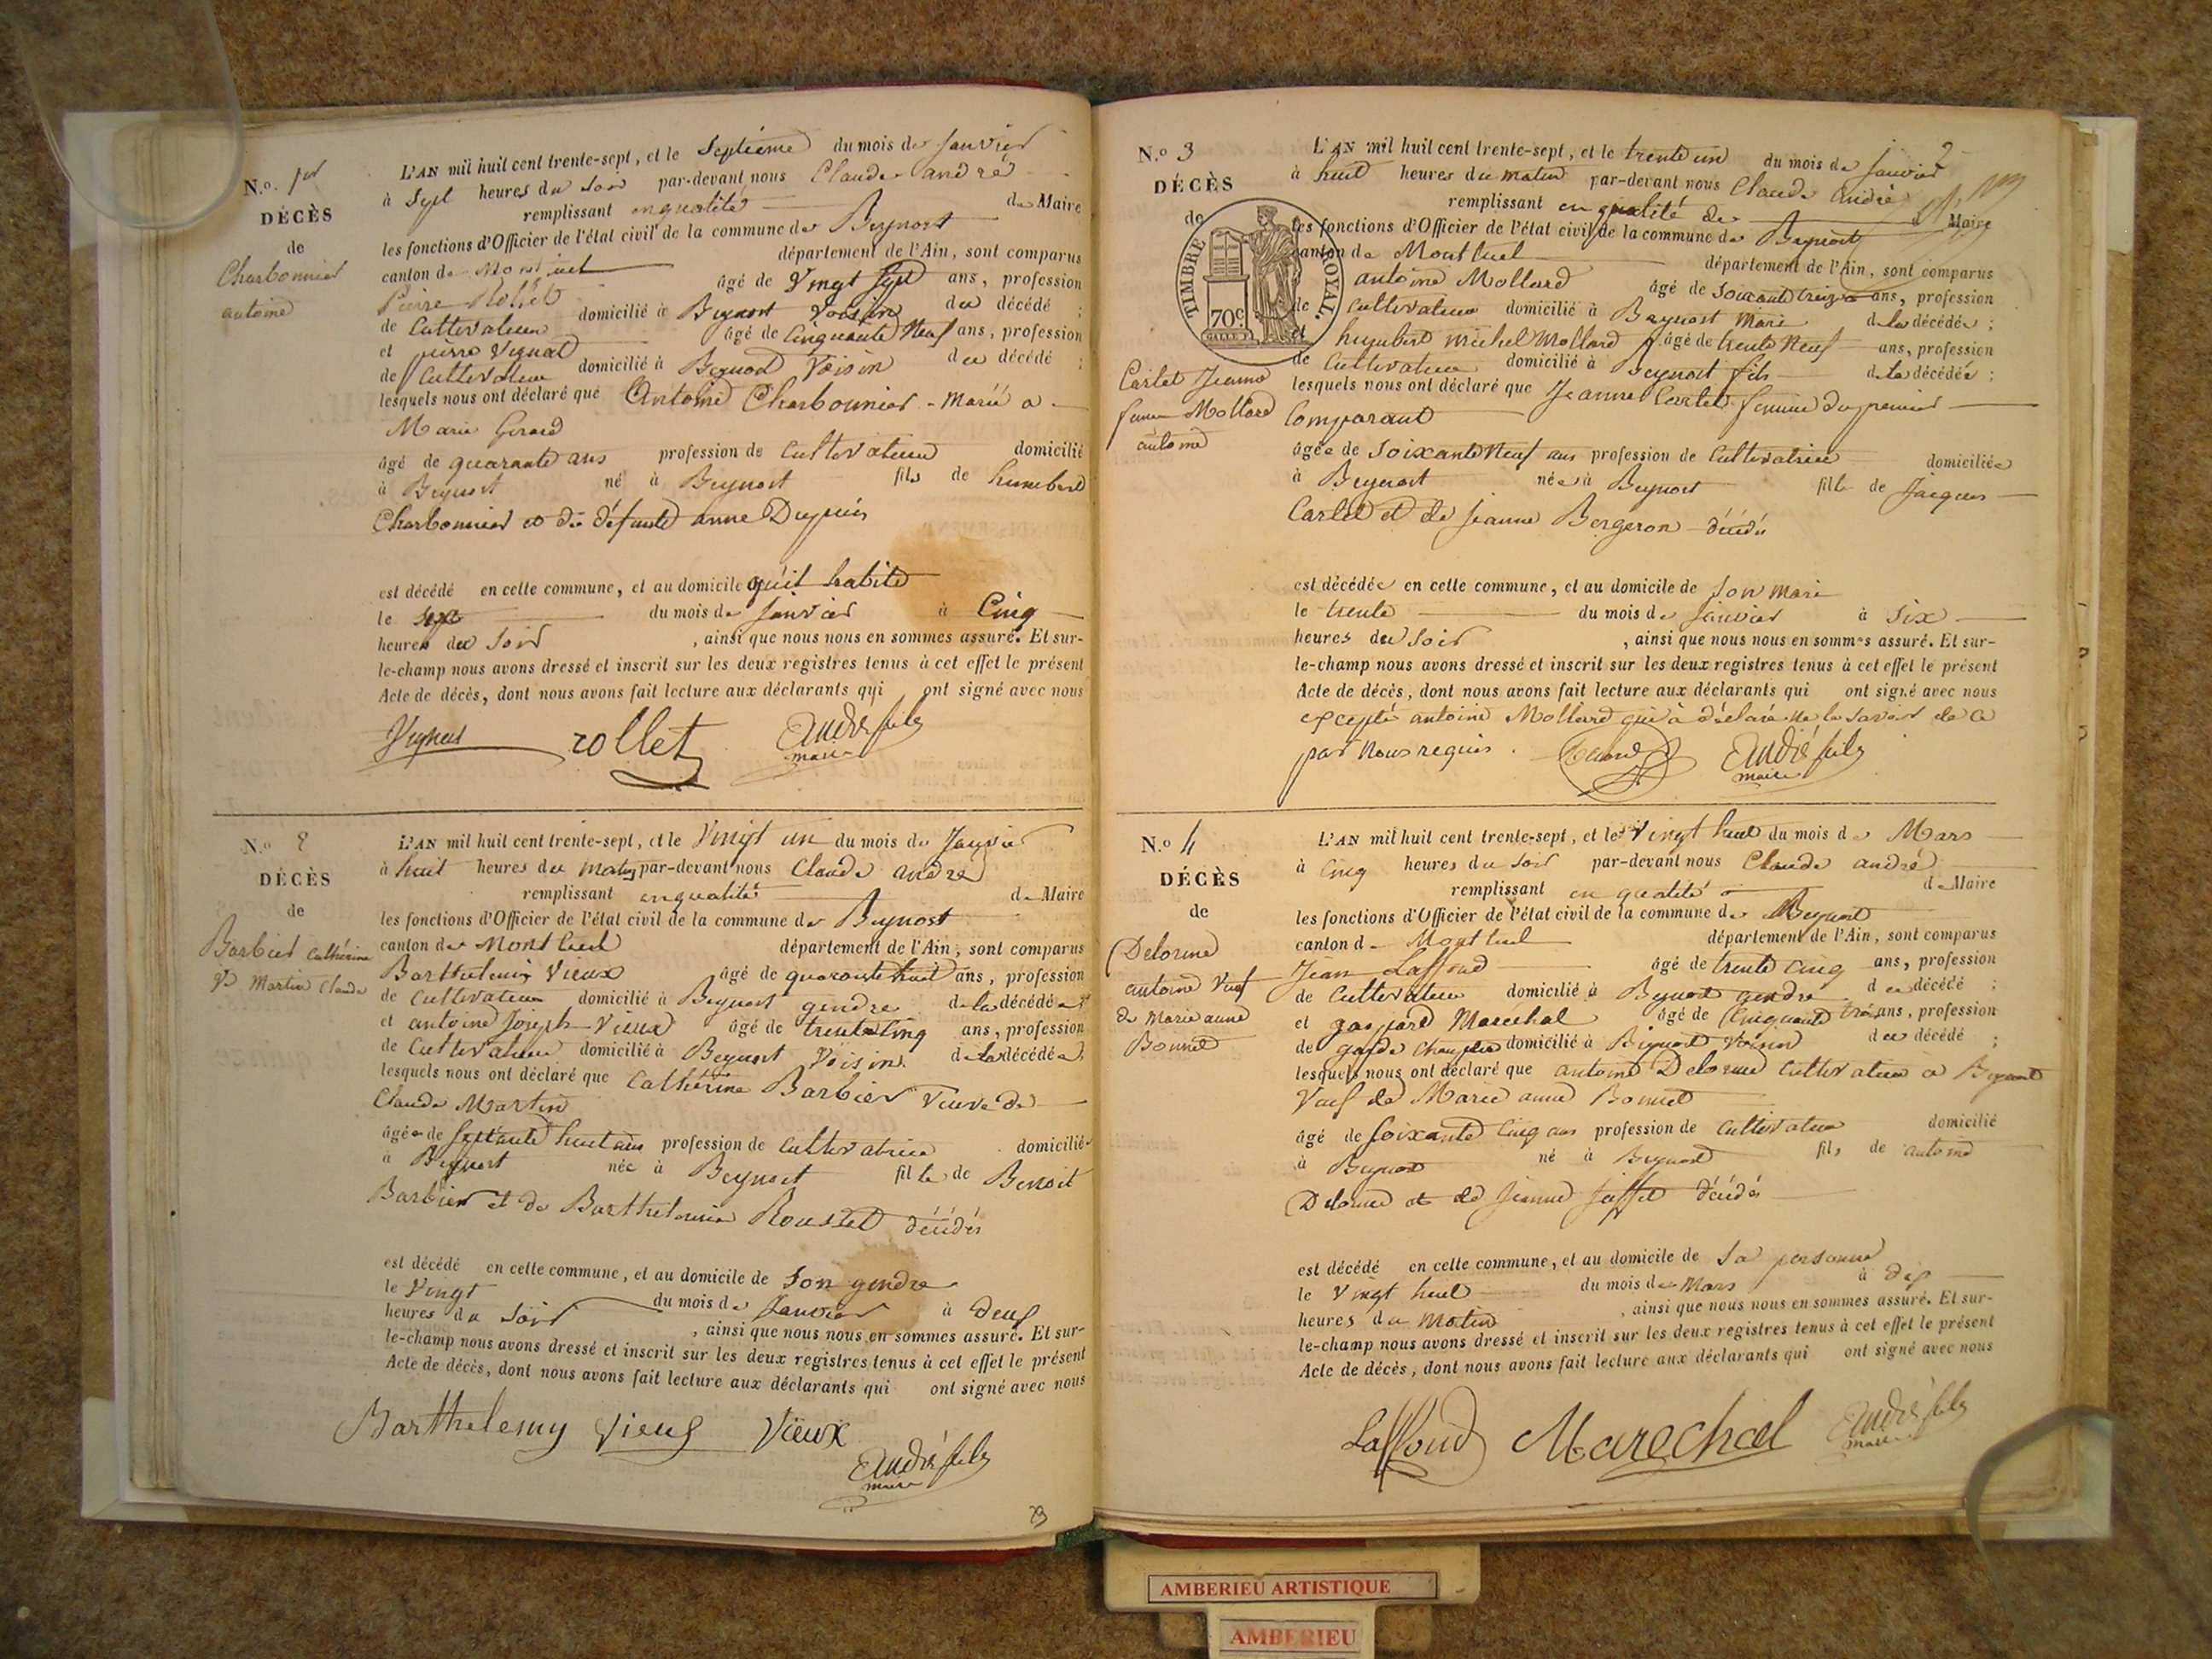 N.o 1er
DÉCÈS
de
Charbonnier
antoine
L'AN mil huit cent trente-sept, et le Septieme du mois de Janvier
à Sept heures du Soir par-devant nous Claude andré
remplissant en qualité de Maire
les fonctions d'Officier de l'état civil de la commune de Beynost
canton de Montluel département de l'Ain, sont comparus
Pierre Rollet âgé de Vingt Sept ans, profession
de Cultivateur domicilié à Beynost Voisin du décédé ;
et pierre Vignat âgé de Cinquante Neuf ans, profession
de Cultivateur domicilié à Beynost Voisin du décédé ;
lesquels nous ont déclaré que Antoine Charbonnier - Marié a
Marie Girard
âgé de quarante ans profession de Cultivateur domicilié
à Beynost né à Beynost fils de humbert
Charbonnier et de défunte anne Dupuis
est décédé en cette commune, et au domicile qu'il habite
le Sept du mois de Janvier à Cinq
heures du Soir , ainsi que nous nous en sommes assuré. Et sur-
le-champ nous avons dressé et inscrit sur les deux registres tenus à cet effet le présent
Acte de décès, dont nous avons fait lecture aux déclarants qui ont signé avec nous
rollet André fils
maire
N.o 2
DÉCÈS
de
Barbier Cathérine
Ve Martin Claude
L'AN mil huit cent trente-sept, et le Vingt un du mois de Janvier
à huit heures du Matin par-devant nous Claude andré
remplissant en qualité de Maire
les fonctions d'Officier de l'état civil de la commune de Beynost
canton de Montluel département de l'Ain, sont comparus
Barthelemy Vieux âgé de quarante huit ans, profession
de Cultivateur domicilié à Beynost gendre de la décédée
et antoine Joseph Vieux âgé de trente Cinq ans, profession
de Cultivateur domicilié à Beynost Voisin de la décédée
lesquels nous ont déclaré que Cathérine Barbier Veuve de
Claude Martin
âgée de Septante huit ans profession de Cultivatrice domiciliée
à Beynost née à Beynost fille de Benoit
Barbier et de Barthelemie Roussel décédés
est décédé en cette commune, et au domicile de Son gendre
le Vingt du mois de Janvier à Deux
heures du Soir , ainsi que nous nous en sommes assuré. Et sur-
le-champ nous avons dressé et inscrit sur les deux registres tenus à cet effet le présent
Acte de décès, dont nous avons fait lecture aux déclarants qui ont signé avec nous
Barthelemy Vieux Vieux
André fils
maire
N.o 3
DÉCÈS
de
TIMBRE ROYAL.
70c.
Carlet Jeanne
femme Mollard
antoine
2
L'AN mil huit cent trente-sept, et le trente un du mois de Janvier
à huit heures du matin par-devant nous Claude André
remplissant en qualité de Maire
les fonctions d'Officier de l'état civil de la commune de Beynost
canton de Montluel département de l'Ain, sont comparus
antoine Mollard âgé de Soixante treize ans, profession
de Cultivateur domicilié à Beynost Mari de la décédée ;
et humbert michel Mollard âgé de trente Neuf ans, profession
de Cultivateur domicilié à Beynost fils de la décédée ;
lesquels nous ont déclaré que Jeanne Carlet femme du premier
Comparant
âgée de Soixante Neuf ans profession de Cultivatrice domiciliée
à Beynost née à Beynost fille de Jacques
Carlet et de Jeanne Bergeron décédés
est décédée en cette commune, et au domicile de Son Mari
le trente du mois de Janvier à Six
heures du Soir , ainsi que nous nous en sommes assuré. Et sur-
le-champ nous avons dressé et inscrit sur les deux registres tenus à cet effet le présent
Acte de décès, dont nous avons fait lecture aux déclarants qui ont signé avec nous
excepté antoine Mollard qui à déclaré ne le Savoir de ce
par Nous requis. André fils
maire
N.o 4
DÉCÈS
de
Delorme
antoine Veuf
de Marie anne
Bonnet
L'AN mil huit cent trente-sept, et le Vingt huit du mois de Mars
à Cinq heures du Soir par-devant nous Claude andré
remplissant en qualité de Maire
les fonctions d'Officier de l'état civil de la commune de Beynost
canton de Montluel département de l'Ain, sont comparus
Jean Laffond âgé de trente Cinq ans, profession
de Cultivateur domicilié à Beynost gendre du décédé ;
et gaspard Marechal âgé de Cinquante trois ans, profession
de garde Champetre domicilié à Beynost Voisin du décédé ;
lesquels nous ont déclaré que antoine Delorme Cultivateur a Beynost
Veuf de Marie anne Bonnet
âgé de Soixante Cinq ans profession de Cultivateur domicilié
à Beynost né à Beynost fils de antoine
Delorme et de Jeanne décédés
est décédé en cette commune, et au domicile de Sa personne
le Vingt huit du mois de Mars à dix
heures du Matin , ainsi que nous nous en sommes assuré. Et sur-
le-champ nous avons dressé et inscrit sur les deux registres tenus à cet effet le présent
Acte de décès, dont nous avons fait lecture aux déclarants qui ont signé avec nous
Laffond Marechal André fils
maire
AMBERIEU ARTISTIQUE
AMBERIEU